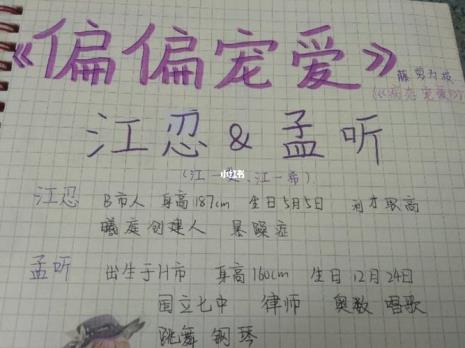 《偏偏宠爱》
藤萝为枝
江忍&孟听
小红书
江忍 B市人 身高187cm 生日5月5日 利才职高
曦庭创建人 暴躁症
孟听 出生于H市 身高160cm 生日12月24日
国立七中 律师 奥数 唱歌
跳舞 钢琴